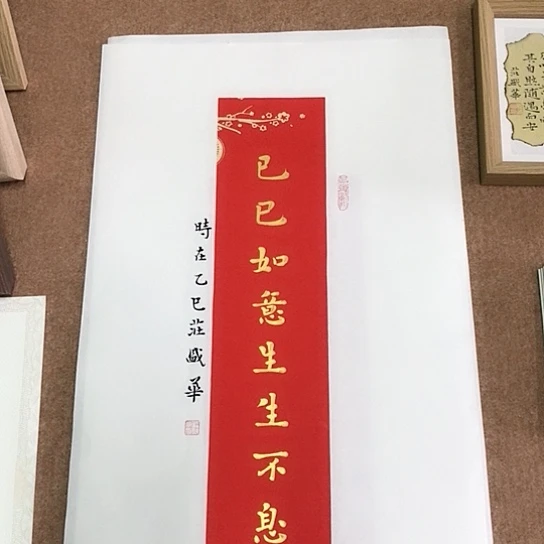 巳巳如意生生不息
時在乙巳莊盛華
其自然随遇而安